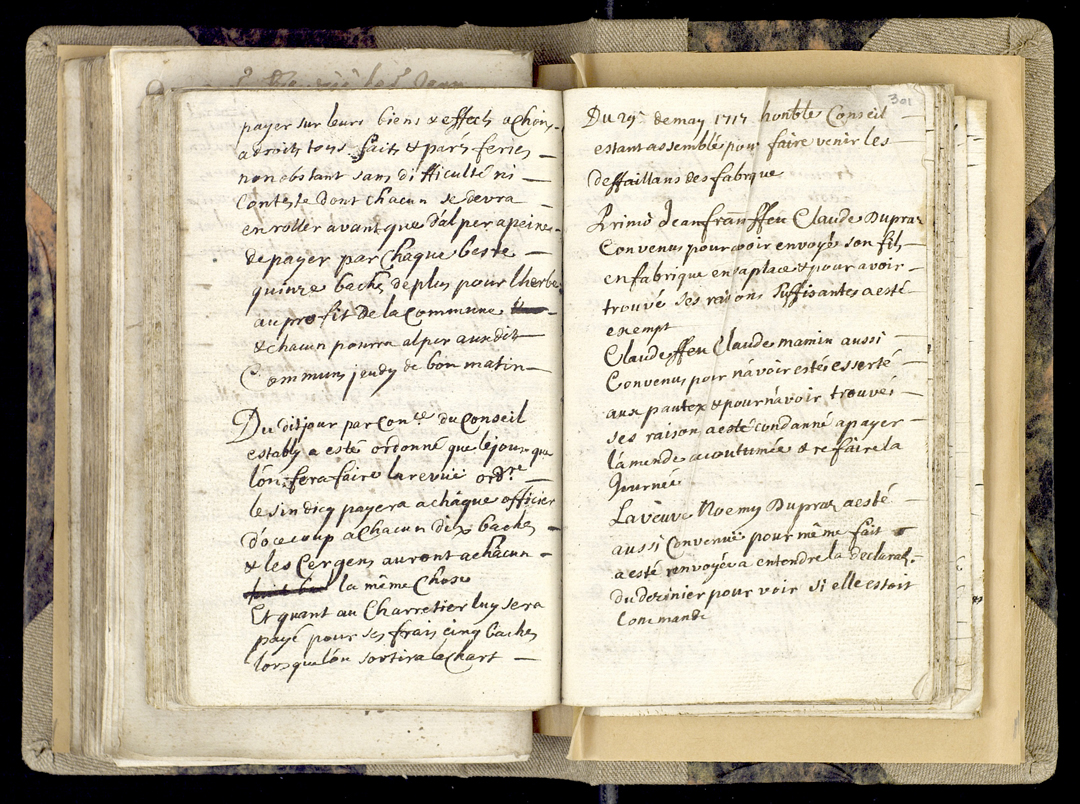 payer sur leurs biens & effects a Chon,,
a droits tous faits & parés feries
nonobstant sans difficulté ni
Conteste dont chacun se devra
enroller avant que d'alper a peine
de payer par Chaque beste
quinze baches de plus pour lherbe
au profit de la Commune
& chacun pourra alper auxdit
Communs jeudy de bon matin
Du dit jour par Con.ce du Conseil
estably a esté ordonné que le jour que
l'on fera faire la revüe ord.re
le sindicq payera a châque officier
d'oceloup a Chacun dix baches
& les Cergens auront a chacun
la même Chose
Et quant au Charretier luy sera
payé pour ses frais cinq baches
lorsque l'on sortira le Chart
301
Du 29e de may 1717 honble Conseil
estant assemblé pour faire venir les
deffaillans des fabrique
Primo Jean fran ffeu Claude Dupraz
Convenus pour avoir envoyé son fils
en fabrique en sa place & pour avoir
trouvé ses raisons suffisantes a esté
exempt
Claude ffeu Claude mamin aussi
Convenus pour n'avoir estés esserté
aux pautex & pour n'avoir trouvés
ses raison a esté condanné a payer
l'amende acoutumée & refaire la
Journée
La veuve Noemy Dupraz a esté
aussi Convenuë pour même fait
a esté renvoyée a entendre la declara.
du dizinier pour voir si elle estoit
Commandé